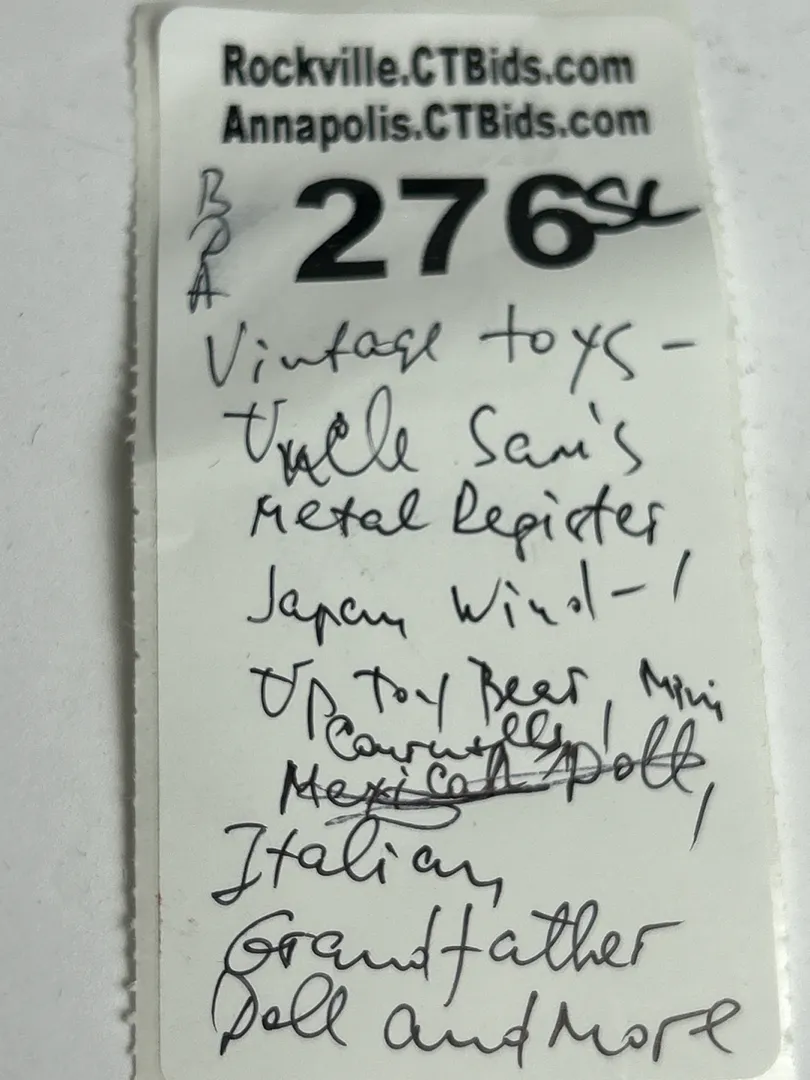 Rockville.CTBids.com
Annapolis.CTBids.com
276 SL
Vintage toys -
Uncle Sam's
Metal Register
Japan Wind-
Up Toy Bear, Mini
Mexican Doll,
Italian
Grandfather
Doll and More